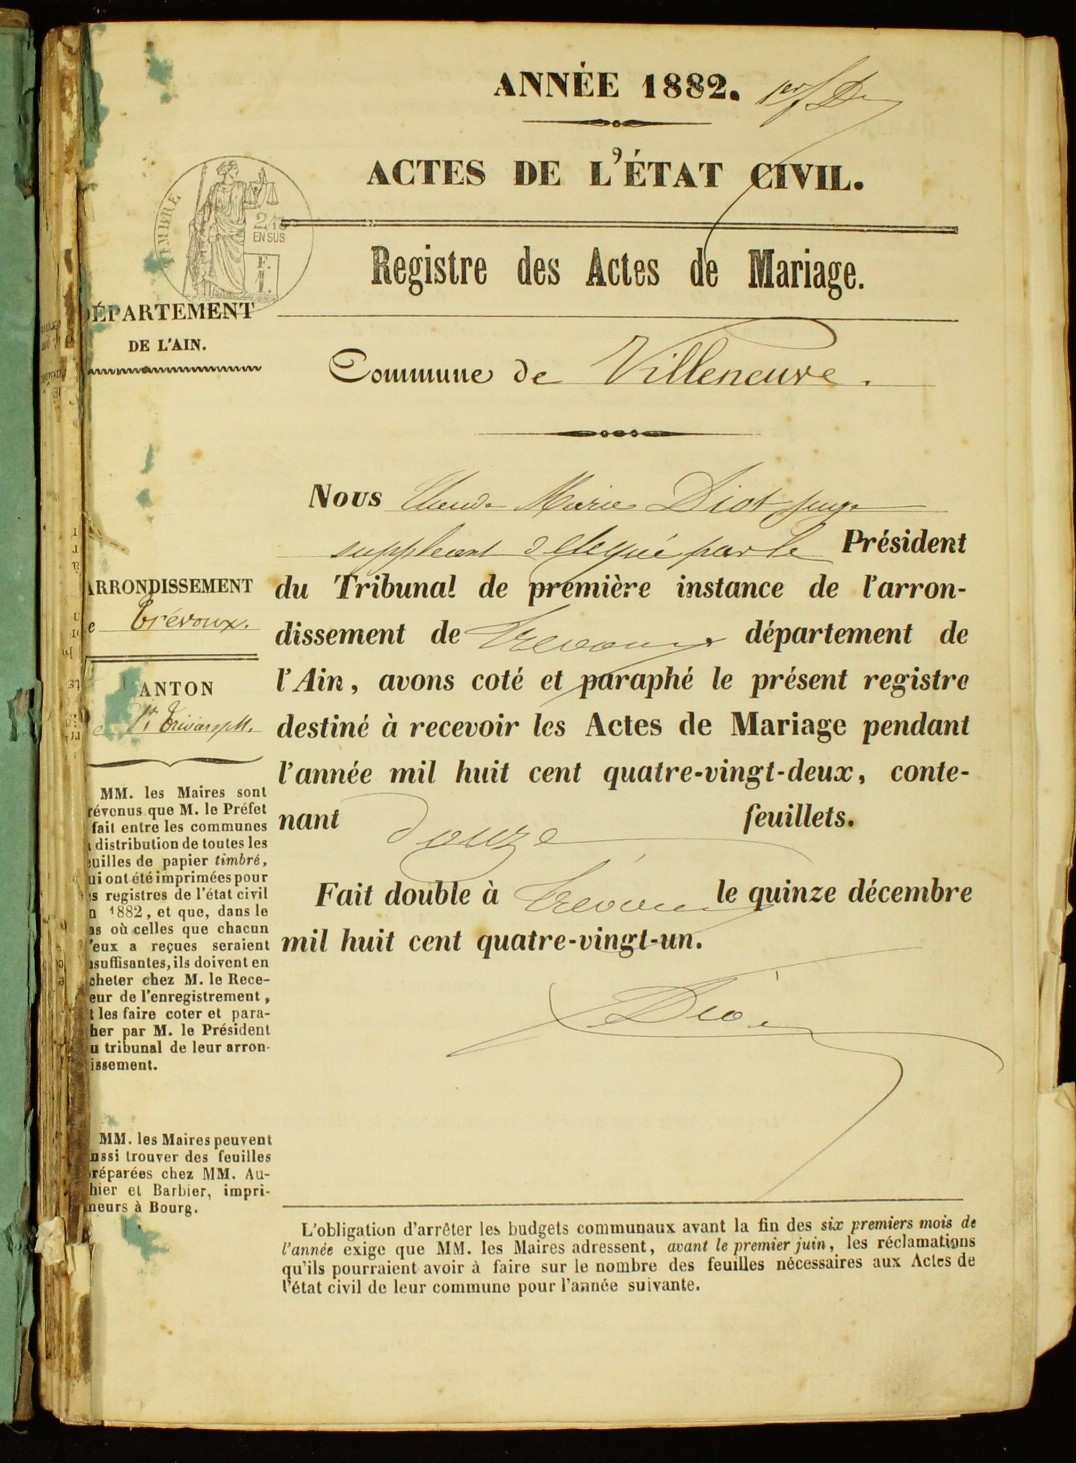 ANNÉE 1882.
ACTES DE L'ÉTAT CIVIL.
TIMBRE
2/10
EN SUS
F.
1.
Registre des Actes de Mariage.
DÉPARTEMENT
DE L'AIN.
Commune de Villeneuve.
Nous Claude Marie Diot juge
suppléant délégué par le Président
du Tribunal de première instance de l'arron-
dissement de Trevoux département de
l'Ain, avons coté et paraphé le présent registre
destiné à recevoir les Actes de Mariage pendant
l'année mil huit cent quatre-vingt-deux, conte-
nant douze feuillets.
Fait double à Trevoux le quinze décembre
mil huit cent quatre-vingt-un.
Diot
ARRONDISSEMENT
e Trévoux.
ANTON
e St Trivier s/M.
MM. les Maires sont
révenus que M. le Préfet
fait entre les communes
distribution de toutes les
uilles de papier timbré,
ui ont été imprimées pour
s registres de l'état civil
n 1882, et que, dans le
as où celles que chacun
'eux a reçues seraient
nsuffisantes, ils doivent en
cheter chez M. le Rece-
eur de l'enregistrement,
t les faire coter et para-
her par M. le Président
u tribunal de leur arron-
issement.
MM. les Maires peuvent
ussi trouver des feuilles
réparées chez MM. Au-
hier et Barbier, impri-
meurs à Bourg.
L'obligation d'arrêter les budgets communaux avant la fin des six premiers mois de
l'année exige que MM. les Maires adressent, avant le premier juin, les réclamations
qu'ils pourraient avoir à faire sur le nombre des feuilles nécessaires aux Actes de
l'état civil de leur commune pour l'année suivante.